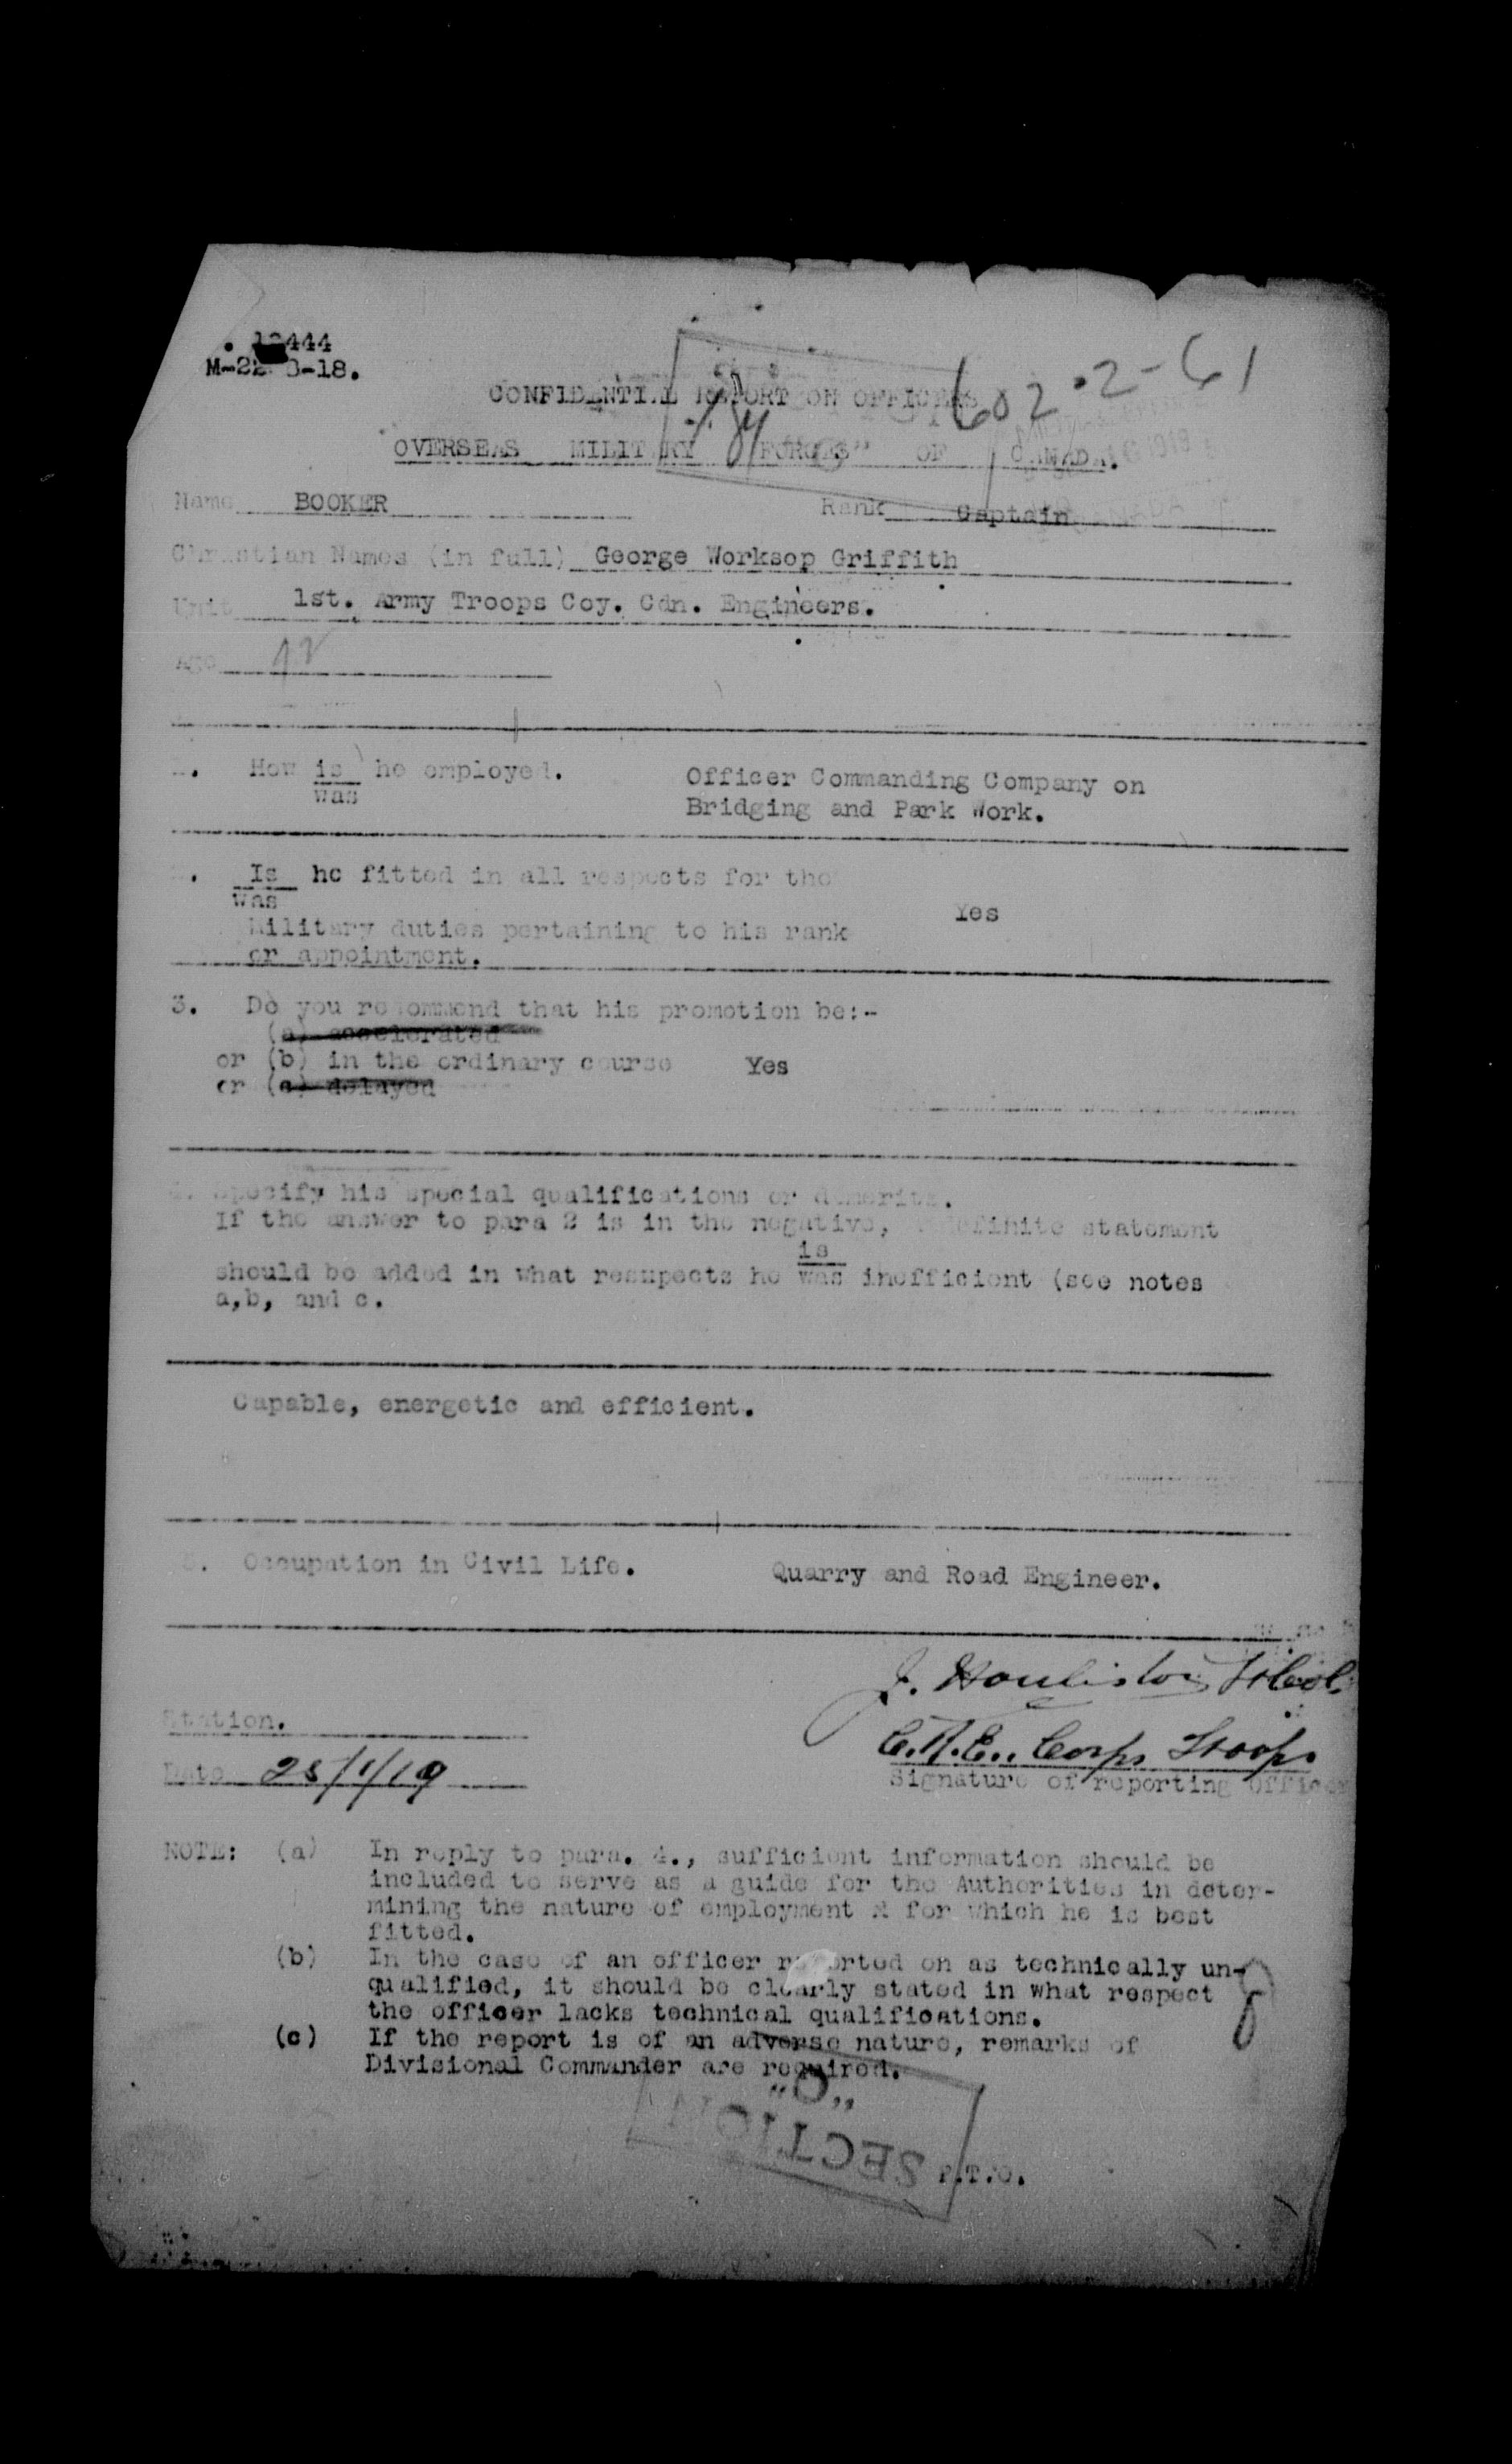 12444
M-2 8-18.
602-2-61
CONFIDENTIAL REPORT ON OFFICERS
OVERSEAS MILITARY FORCES OF CANADA.
Name BOOKER Rank Captain
Christian Names (in full) George Worksop Griffith
Unit 1st. Army Troops Coy. Cdn. Engineers.
Age 42
1. How is he employed. Officer Commanding Company on
was Bridging and Park Work.
2. Is he fitted in all respects for the
was
Military duties pertaining to his rank Yes
or appointment.
3. Do you recommend that his promotion be:-
(a) accelerated
or (b) in the ordinary course Yes
or (c) delayed
4. Specify his special qualifications or demerits.
If the answer to para 2 is in the negative, a definite statement
is
should be added in what resupects he was inefficient (see notes
a,b, and c.
Capable, energetic and efficient.
5. Occupation in Civil Life. Quarry and Road Engineer.
J. Houliston Lt Col.
Station.
C.R.E. Corps Troops
Date 28/1/19
Signature of reporting Officer
NOTE: (a) In reply to para. 4., sufficient information should be
included to serve as a guide for the Authorities in deter-
mining the nature of employment x for which he is best
fitted.
(b) In the case of an officer reported on as technically un-
qualified, it should be clearly stated in what respect
the officer lacks technical qualifications.
(c) If the report is of an adverse nature, remarks of
Divisional Commander are required.
"O"
SECTION
P.T.O.